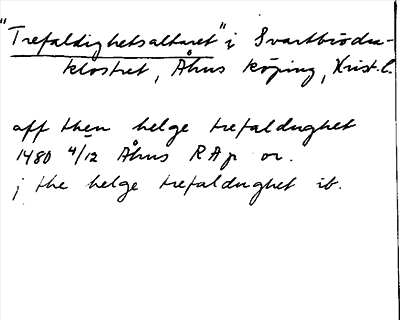 "Trefaldighetsaltaret" i Svartbrödra-
klostret, Åhus köping, Krist.l.
aff then helge trefaldughet
1480 4/12 Åhus RAp or.
j the helge trefaldughet ib.